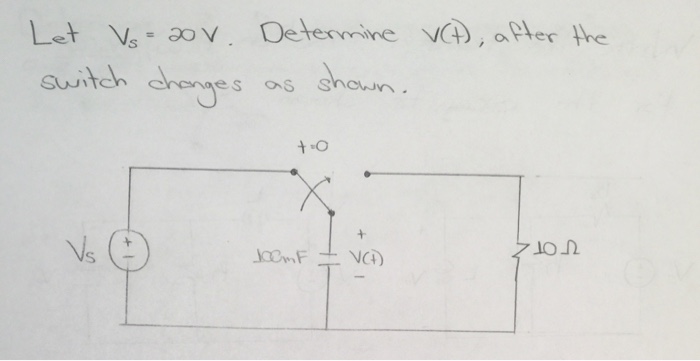 Let Vs = 20 V. Determine v(t), after the
switch changes as shown.
t=0
Vs
+
-
100mF
+
V(t)
-
10 Ω